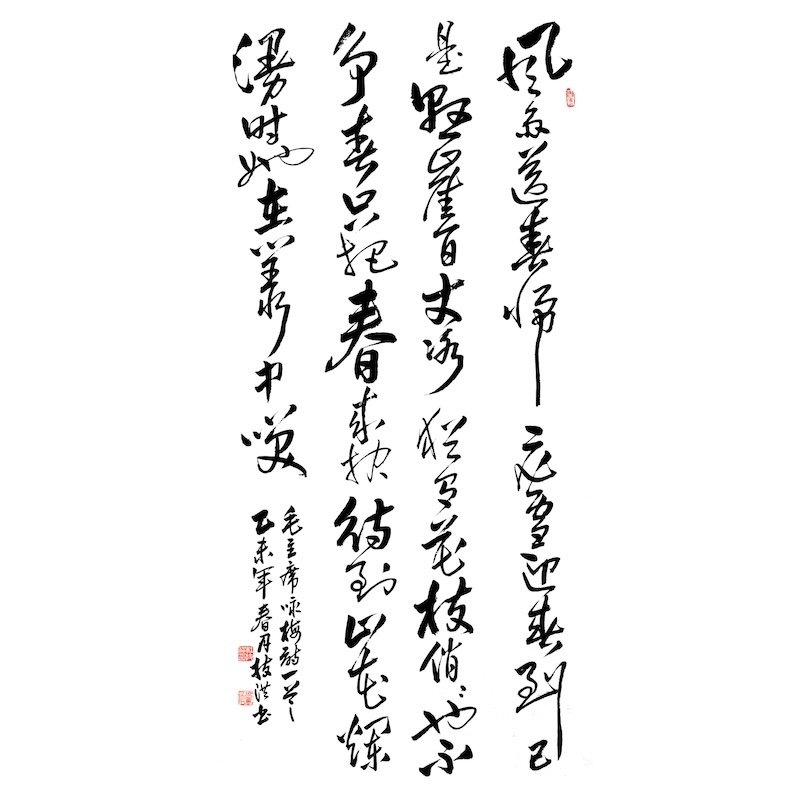 風雨送春歸飛雪迎春到已
是懸崖百丈冰猶有花枝俏々也不
争春只把春來报待到山花爛
漫时她在叢中笑
毛主席咏梅詩一首
乙未年春月枝洪书